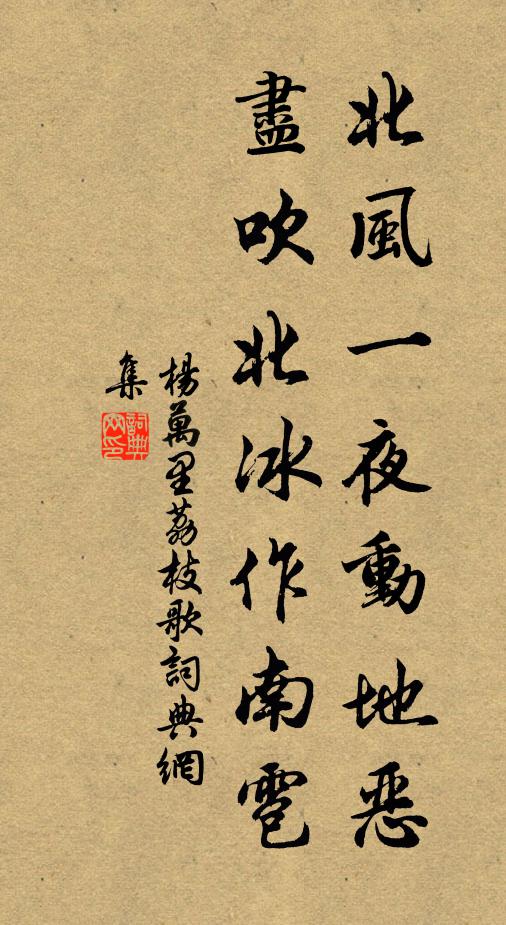 北風一夜動地恶
盡吹北冰作南雹
楊萬里荔枝歌詞典網
集
詞典網印